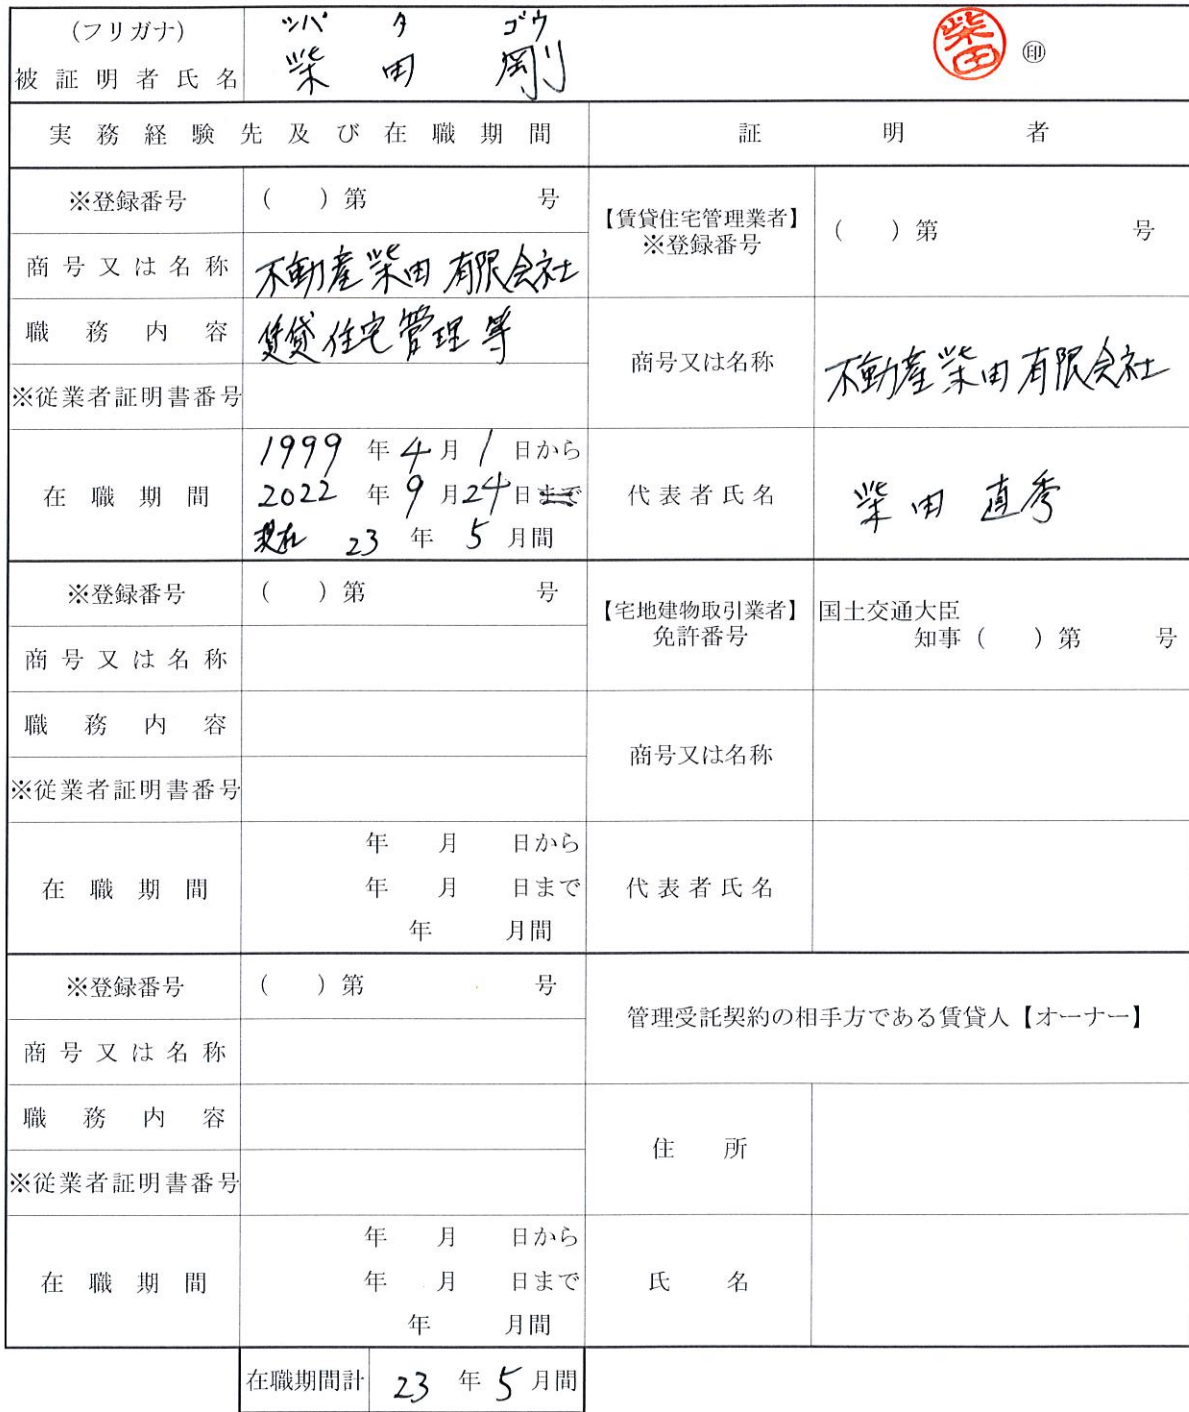 (フリガナ) シバ タ ゴウ
被証明者氏名 柴田 剛 柴田 ㊞
実務経験先及び在職期間 証明者
※登録番号 ( )第 号
【賃貸住宅管理業者】
※登録番号 ( )第 号
商号又は名称 不動産柴田有限会社
職務内容 賃貸住宅管理等
商号又は名称 不動産柴田有限会社
※従業者証明書番号
在職期間
1999年4月1日から
2022年9月24日まで
現在 23年5月間
代表者氏名 柴田 直秀
※登録番号 ( )第 号
【宅地建物取引業者】
免許番号
国土交通大臣
知事( )第 号
商号又は名称
職務内容
商号又は名称
※従業者証明書番号
在職期間
年 月 日から
年 月 日まで
年 月間
代表者氏名
※登録番号 ( )第 号
管理受託契約の相手方である賃貸人【オーナー】
商号又は名称
職務内容
住所
※従業者証明書番号
在職期間
年 月 日から
年 月 日まで
年 月間
氏名
在職期間計 23年5月間